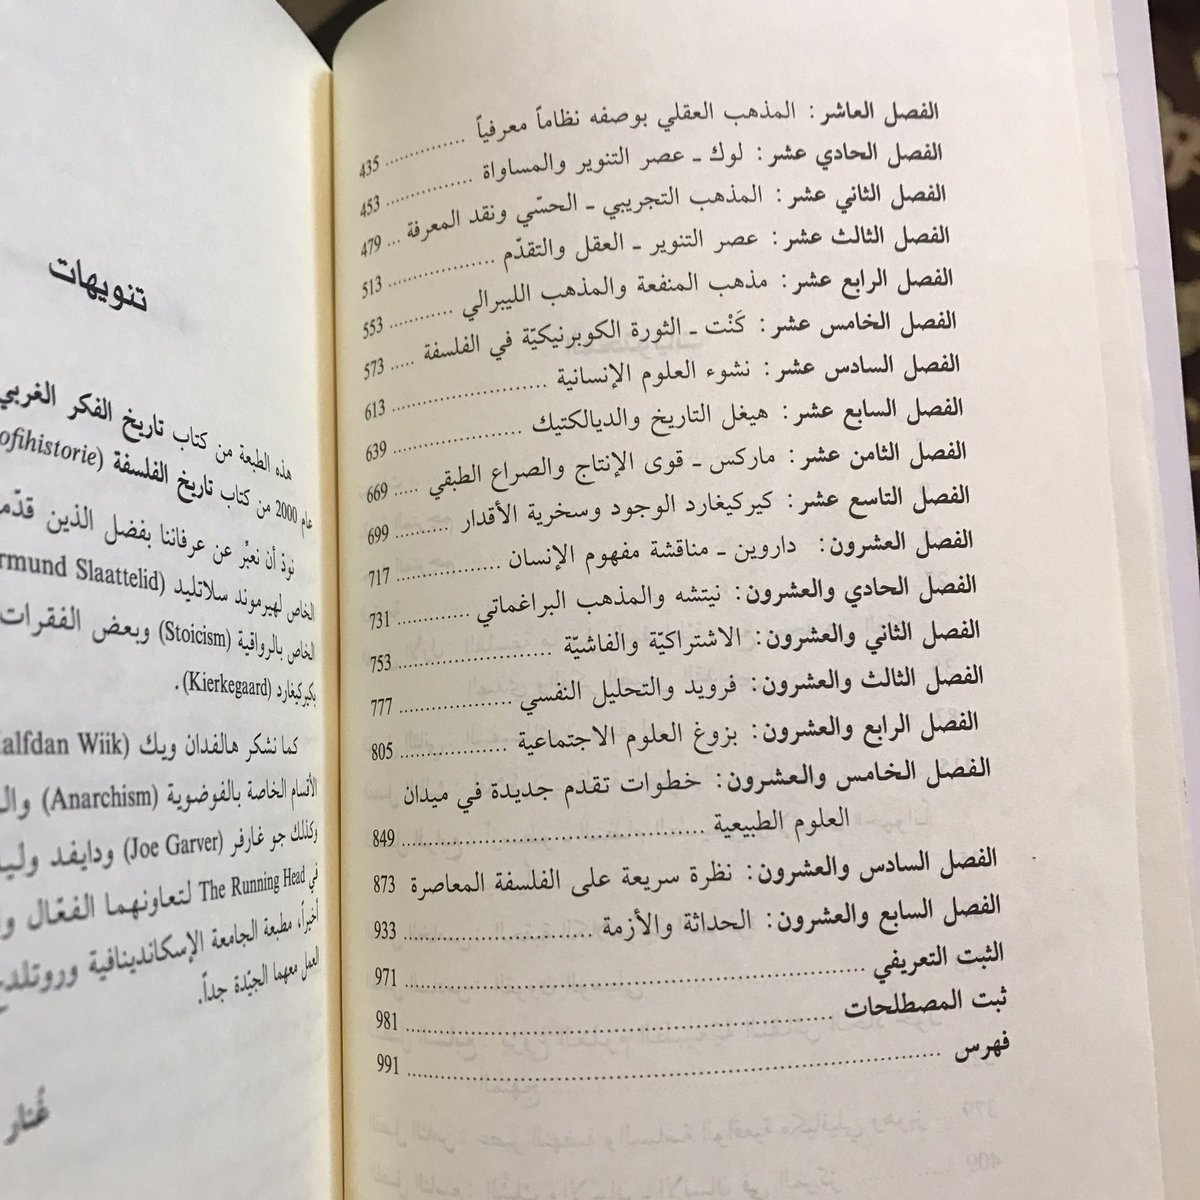 الفصل العاشر : المذهب العقلي بوصفه نظاماً معرفياً ........ 435
الفصل الحادي عشر : لوك ـ عصر التنوير والمساواة ........ 453
الفصل الثاني عشر : المذهب التجريبي ـ الحسّي ونقد المعرفة ... 479
الفصل الثالث عشر : عصر التنوير ـ العقل والتقدّم ........ 513
الفصل الرابع عشر : مذهب المنفعة والمذهب الليبرالي ........ 553
الفصل الخامس عشر : كَنْت ـ الثورة الكوبرنيكيّة في الفلسفة ..... 573
الفصل السادس عشر : نشوء العلوم الإنسانية ........ 613
الفصل السابع عشر : هيغل التاريخ والديالكتيك ........ 639
الفصل الثامن عشر : ماركس ـ قوى الإنتاج والصراع الطبقي ..... 669
الفصل التاسع عشر : كيركيغارد الوجود وسخرية الأقدار ........ 699
الفصل العشرون : داروين ـ مناقشة مفهوم الإنسان ........ 717
الفصل الحادي والعشرون : نيتشه والمذهب البراغماتي ........ 731
الفصل الثاني والعشرون: الاشتراكيّة والفاشيّة ........ 753
الفصل الثالث والعشرون: فرويد والتحليل النفسي ........ 777
الفصل الرابع والعشرون: بزوغ العلوم الاجتماعية ........ 805
الفصل الخامس والعشرون: خطوات تقدم جديدة في ميدان
العلوم الطبيعية ........ 849
الفصل السادس والعشرون: نظرة سريعة على الفلسفة المعاصرة 873
الفصل السابع والعشرون: الحداثة والأزمة ........ 933
الثبت التعريفي ........ 971
ثبت المصطلحات ........ 981
فهرس ........ 991
تنويهات
هذه الطبعة من كتاب تاريخ الفكر الغربي
عام 2000 من كتاب تاريخ الفلسفة (ofihistorie
نودّ أن نعبّر عن عرفاننا بفضل الذين قدّمـ
الخاص لهيرموند سلاتليد (rmund Slaattelid
الخاص بالرواقية (Stoicism) وبعض الفقرات
بكيركيغارد (Kierkegaard).
كما نشكر هالفدان ويك (Halfdan Wiik
الأقسام الخاصة بالفوضوية (Anarchism) والـ
وكذلك جو غارفر (Joe Garver) ودايفد وليـ
في The Running Head لتعاونهما الفعّال و
أخيراً، مطبعة الجامعة الإسكاندينافية وروتلدج
العمل معهما الجيّدة جداً.
غُنار